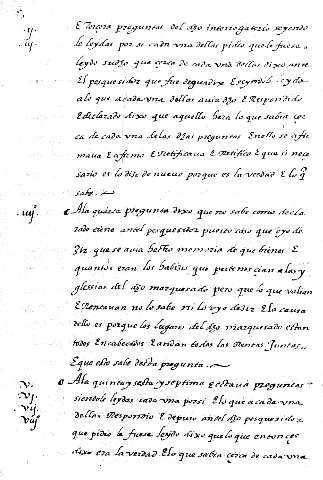 ij. E tercera preguntas del dho interrogatorio seyendo
iij. le leydas por si cada vna dellas pidio que le fuese
leydo su dho que çerca de cada vna dellas dixo ante
El pesquesidor que fue de guadix E seyendole leydo
a lo que a cada vna dellas avia dho E Respondido
E declarado dixo que aquello hera lo que sabia çer
ca de cada vna de las dhas preguntas E en ello se afir
mava E afirmo E Retificava E Retifico E que si neçe
sario es lo dize de nuevo porque es la verdad E lo q
sabe.
iiij. A la quarta pregunta dixo que no sabe como decla
rado tiene ant el pesquesidor puesto caso que oyo de
zir que se avia hecho memoria de que bienes E
quantos eran los habizes que perteneçian a las y
glesias del dho marquesado pero que lo que valian
E Rentavan no lo sabe ni lo oyo dezir E la causa
dello es porque los lugares del dho marquesado estan
todos Encabeçados E andan todas las Rentas Juntas
E que esto sabe desta pregunta.
v. A la quinta y sesta y septima E otava preguntas
vi. siendole leydas cada vna por si E lo que a cada vna
vii. dellas Respondio E depuso ant el dho pesquesidor
viij que pidio le fuese leydo dixo que lo que entonçes
dixo era la verdad E lo que sabia çerca de cada vna